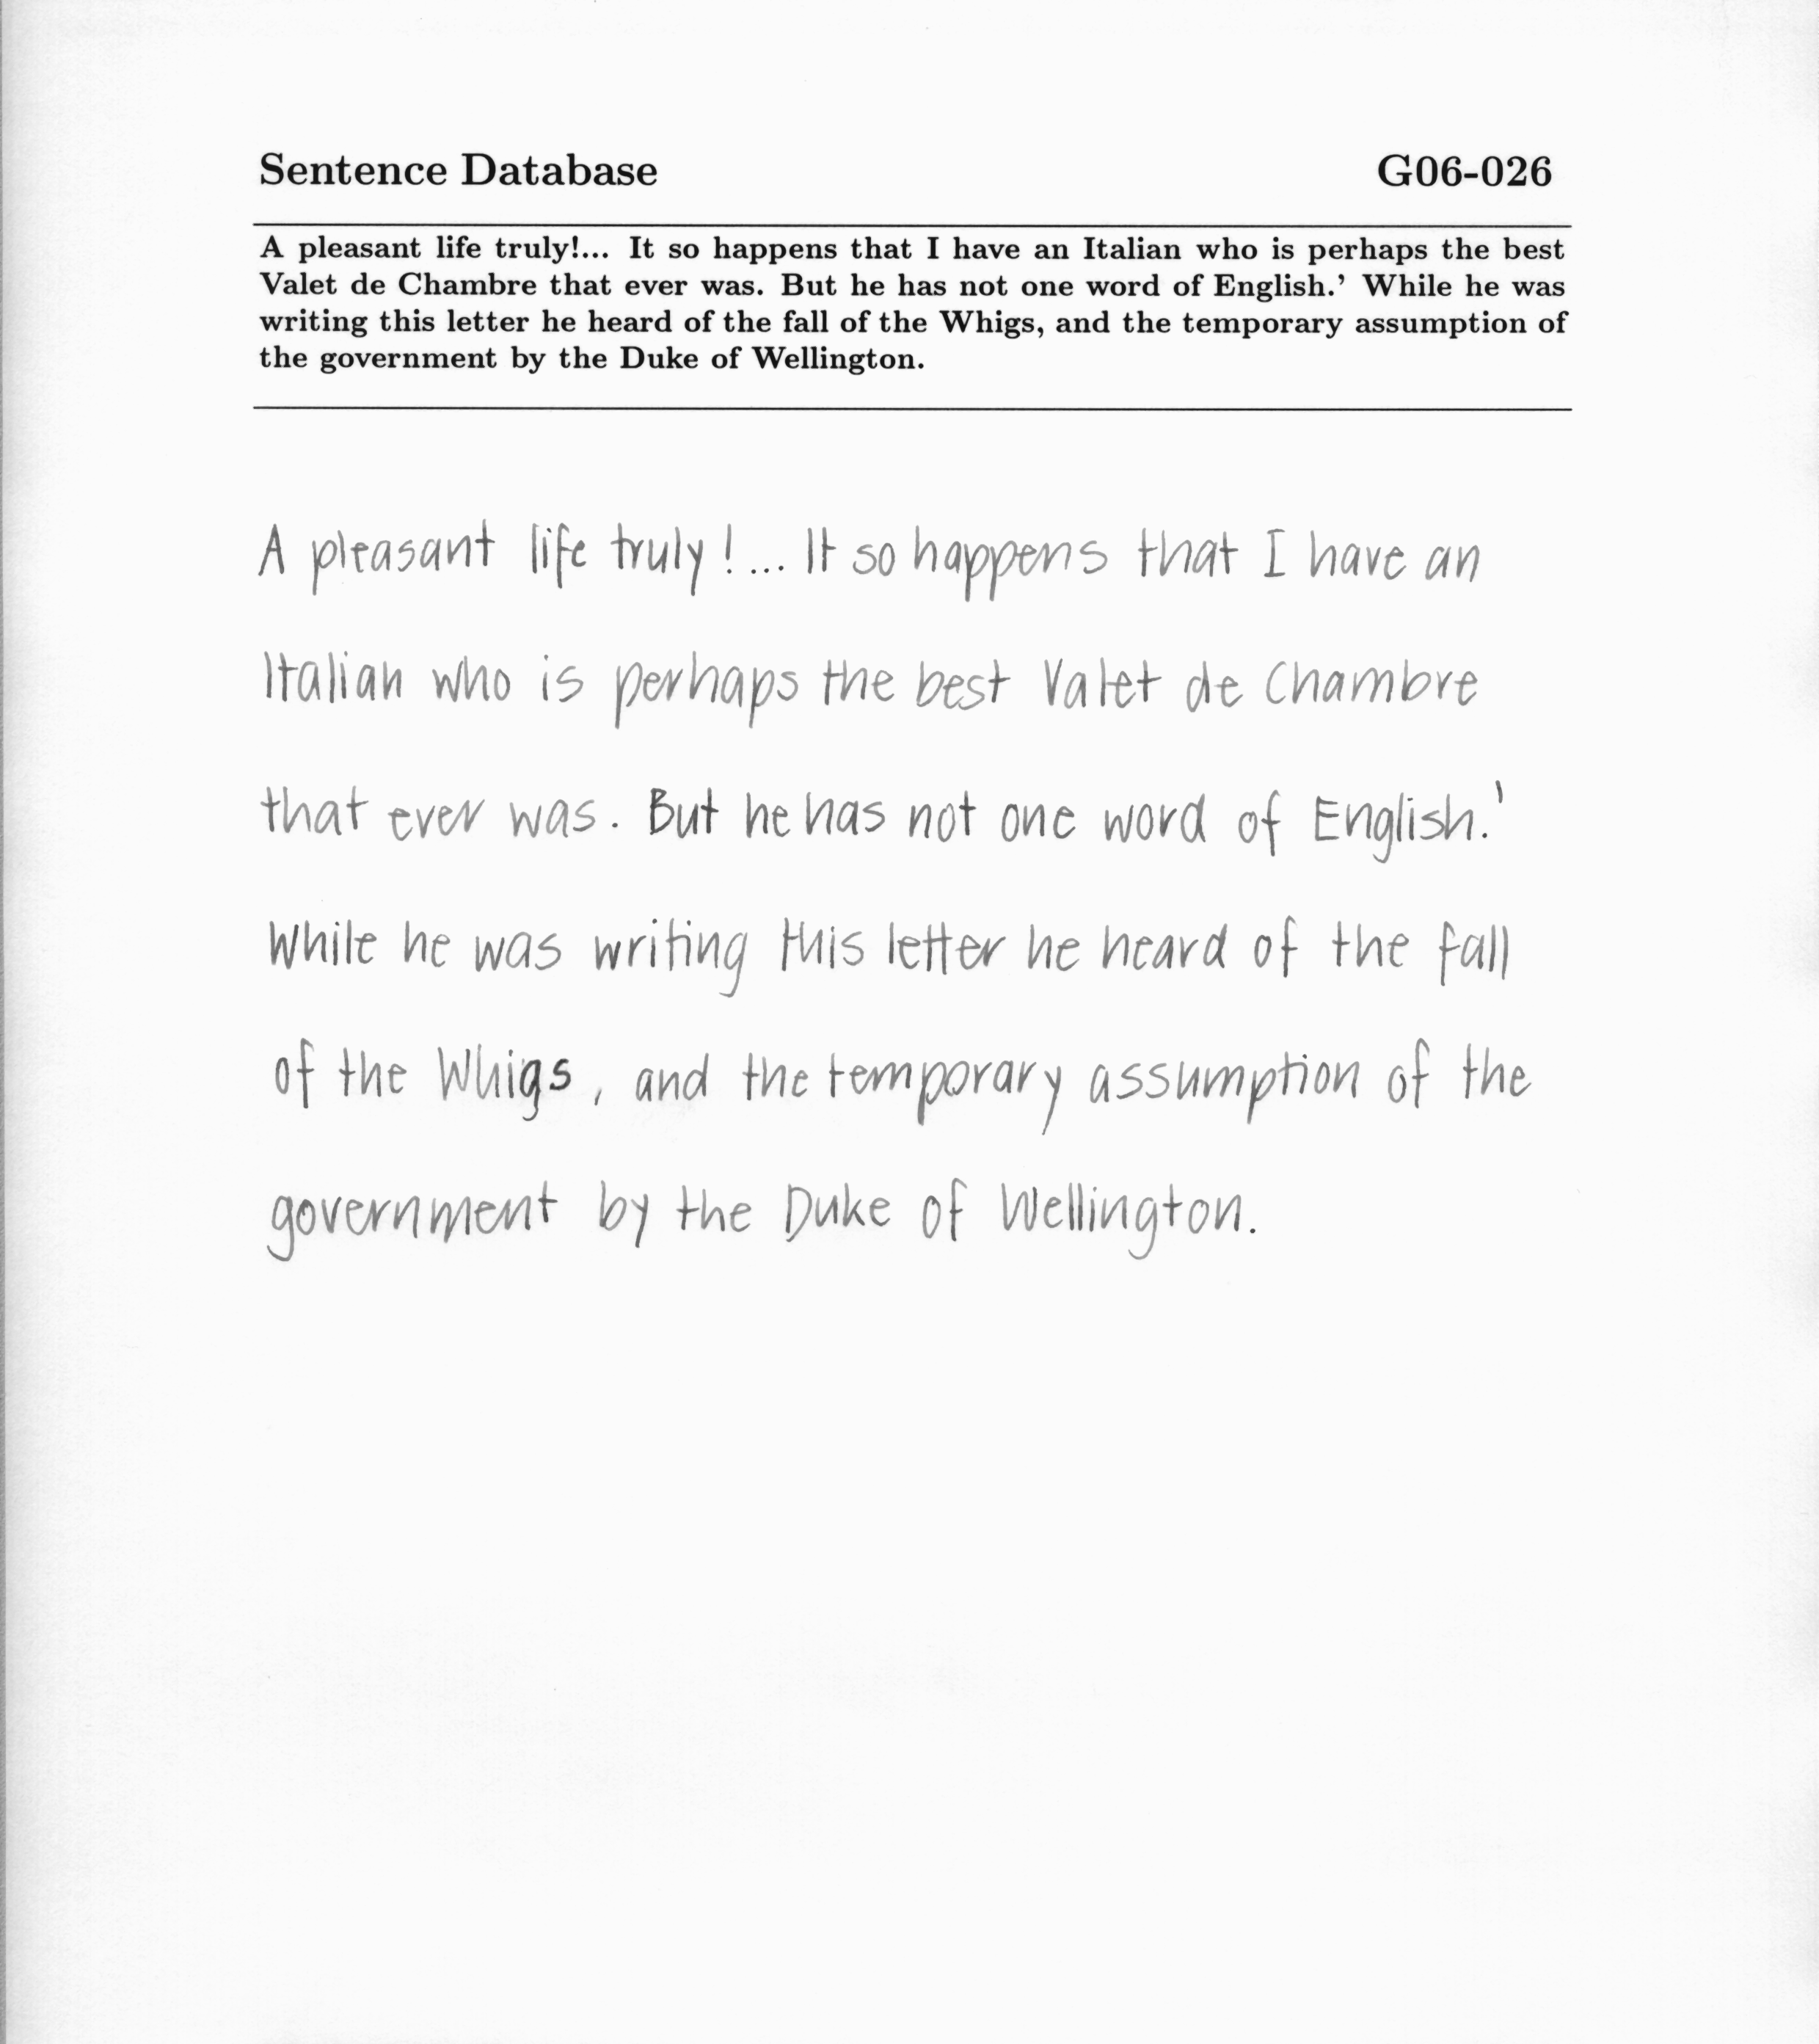 Sentence Database G06-026
A pleasant life truly!... It so happens that I have an Italian who is perhaps the best
Valet de Chambre that ever was. But he has not one word of English.' While he was
writing this letter he heard of the fall of the Whigs, and the temporary assumption of
the government by the Duke of Wellington.
A pleasant life truly!... It so happens that I have an
Italian who is perhaps the best Valet de Chambre
that ever was. But he has not one word of English.'
While he was writing this letter he heard of the fall
of the Whigs, and the temporary assumption of the
government by the Duke of Wellington.